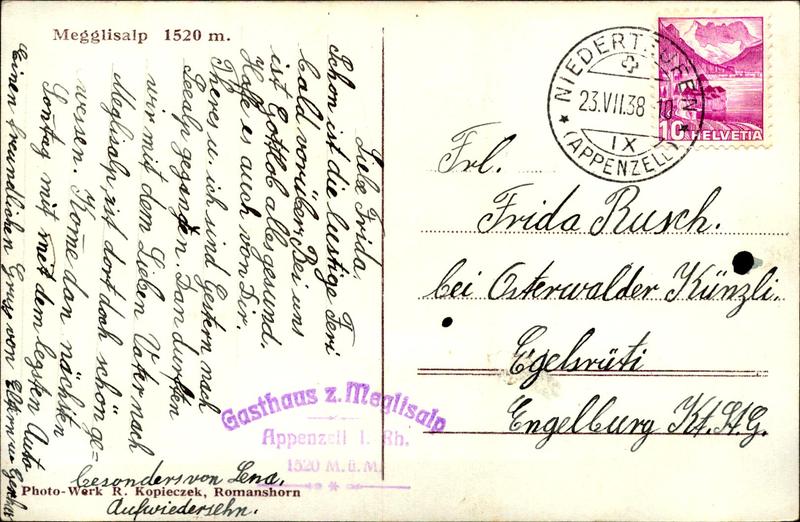 Megglisalp 1520 m.
Liebe Frida.
Schon ist die lustige Feri
bald vorüber. Bei uns
ist Gottlob alles gesund,
Hoffe es auch von Dir.
Theres u. ich sind Gestern nach
Seealp gegangen. Dan durften
wir mit dem Lieben Vater nach
Meglisalp, ist dort doch schön ge=
wesen. Kome dan nächsten
Sontag mit met dem lezten Auto
Einen freundlichen Gruss von Eltern u.
besonders von Lena.
Aufwiedersehn.
Photo-Werk R. Kopieczek, Romanshorn
Gasthaus z. Meglisalp
Appenzell I. Rh.
1520 M.ü.M.
NIEDERTEUFEN
23.VII.38
IX
(APPENZELL)
10 HELVETIA
Frl.
Frida Rusch.
bei Osterwalder Künzli.
Egelsrüti
Engelburg Kt. St. G.